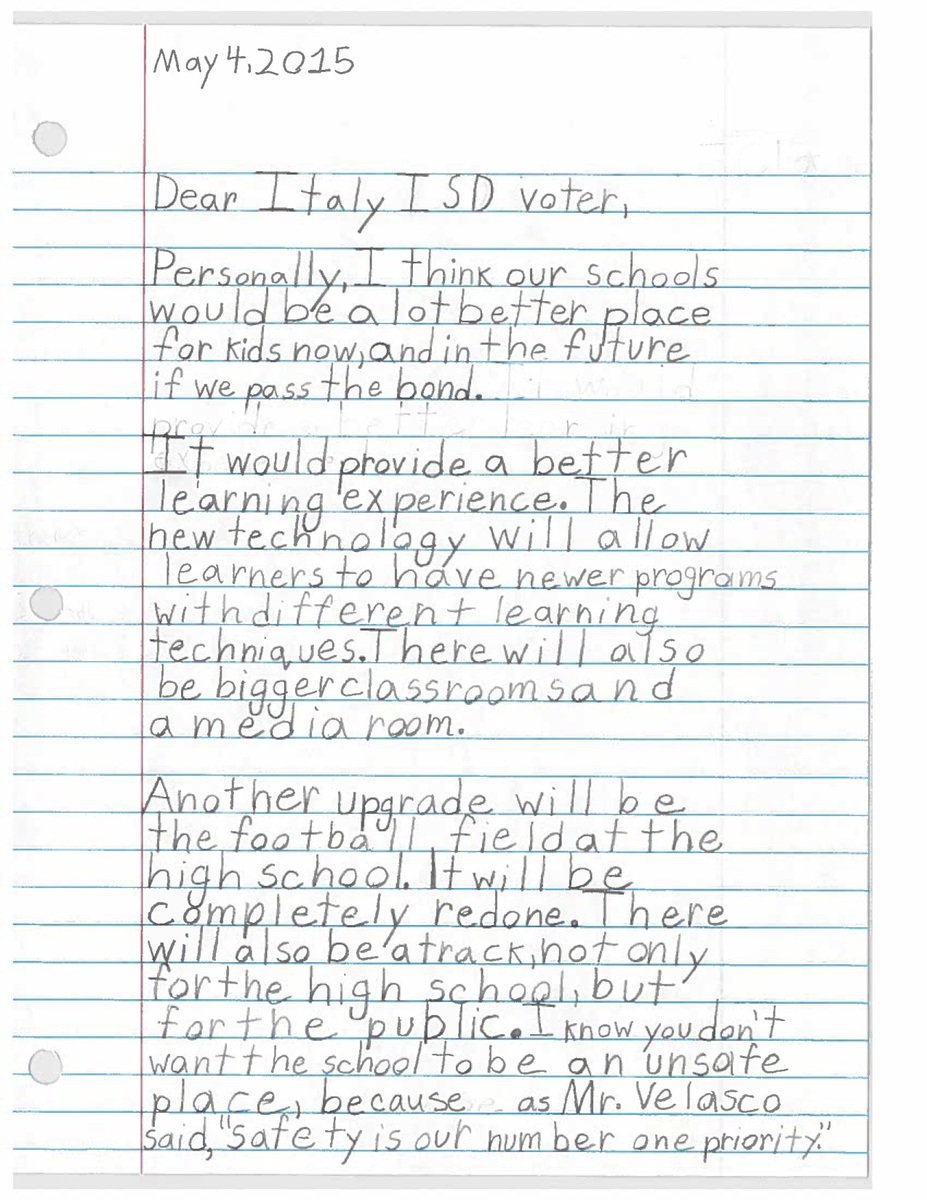 May 4, 2015
Dear Italy ISD voter,
Personally, I think our schools
would be a lot better place
for kids now, and in the future
if we pass the bond.
It would provide a better
learning experience. The
new technology will allow
learners to have newer programs
with different learning
techniques. There will also
be bigger classrooms and
a media room.
Another upgrade will be
the football field at the
high school. It will be
completely redone. There
will also be a track, not only
for the high school, but
for the public. I know you don't
want the school to be an unsafe
place, because as Mr. Velasco
said, "safety is our number one priority."